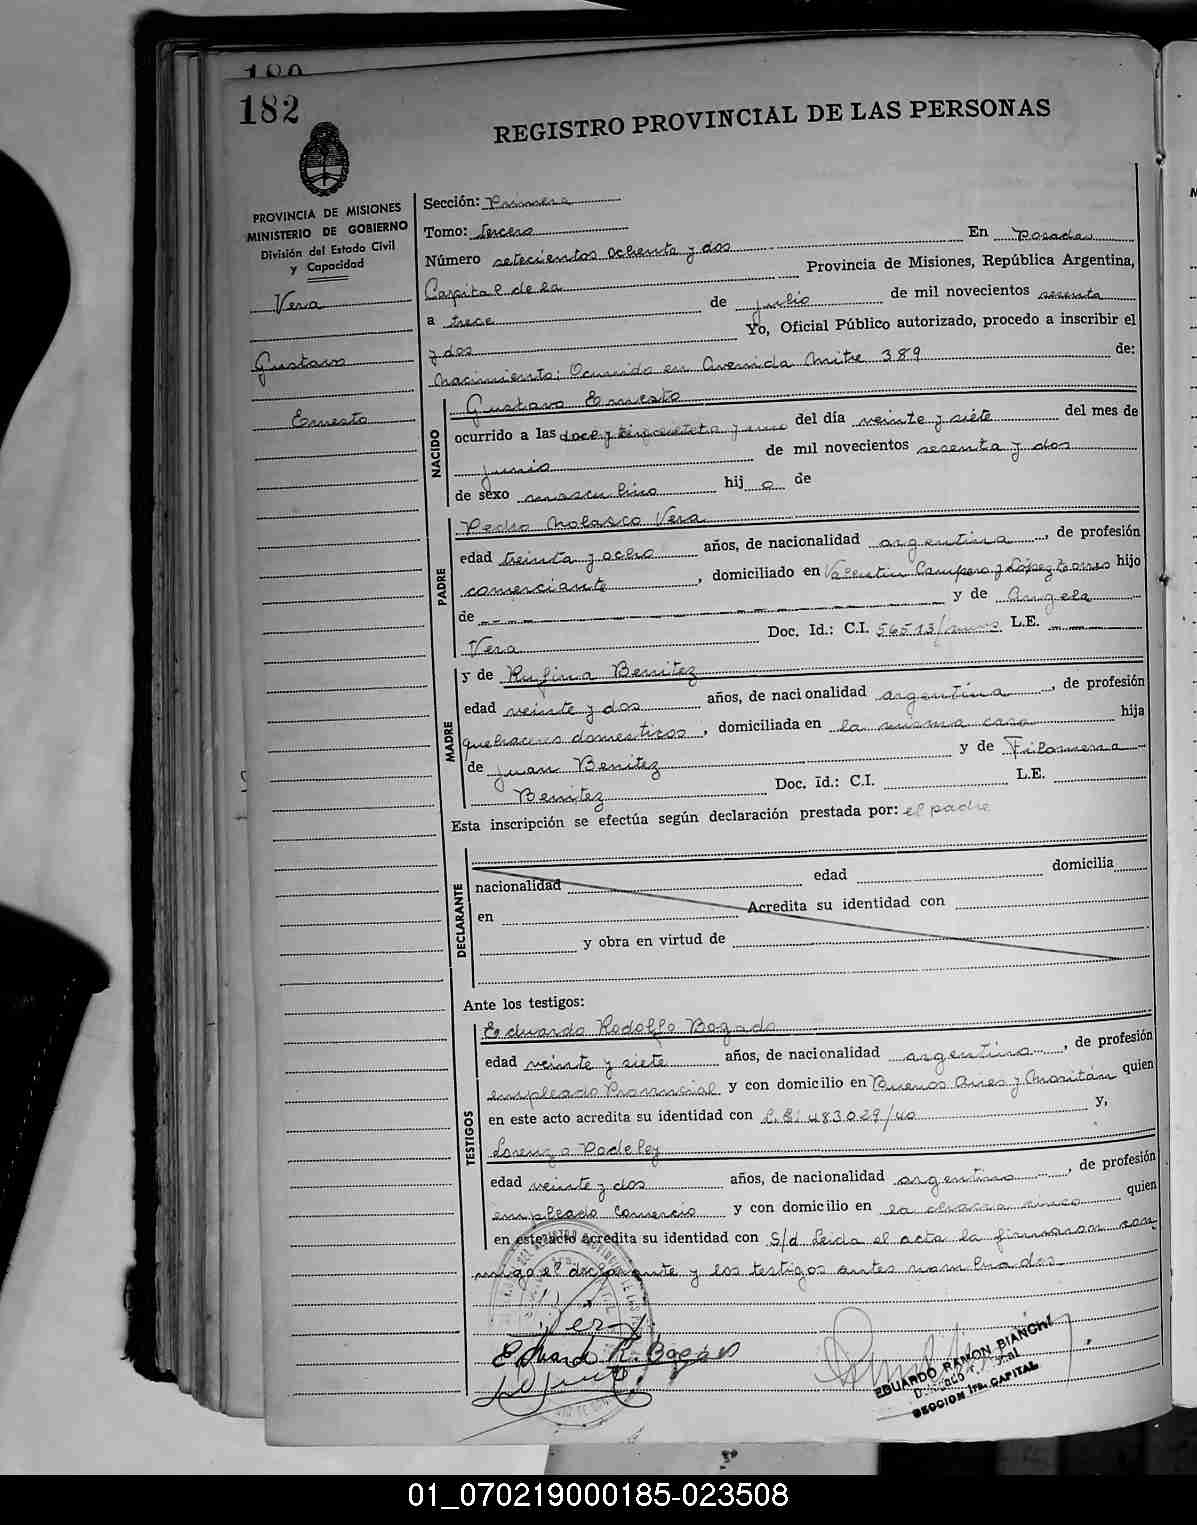 180
182
REGISTRO PROVINCIAL DE LAS PERSONAS
PROVINCIA DE MISIONES
MINISTERIO DE GOBIERNO
División del Estado Civil
y Capacidad
Vera
Gustavo
Ernesto
Sección: Primera
Tomo: tercero
Número setecientos ochenta y dos En Posadas
Capital de la Provincia de Misiones, República Argentina,
a trece de julio de mil novecientos sesenta
y dos Yo, Oficial Público autorizado, procedo a inscribir el
Nacimiento: Ocurrido en Avenida Mitre 389 de:
NACIDO
Gustavo Ernesto
ocurrido a las doce y cincuenta y uno del día veinte y siete del mes de
junio de mil novecientos sesenta y dos
de sexo masculino hij o de
PADRE
Pedro Nolasco Vera
edad treinta y ocho años, de nacionalidad argentina, de profesión
comerciante, domiciliado en Valentin Campero y López torres hijo
de y de Angela
Vera Doc. Id.: C.I. 56513/mnes L.E.
MADRE
y de Rufina Benitez
edad veinte y dos años, de nacionalidad argentina, de profesión
quehaceres domesticos, domiciliada en la misma casa hija
de Juan Benitez y de Filomena
Benitez Doc. Id.: C.I. L.E.
Esta inscripción se efectúa según declaración prestada por: el padre
DECLARANTE
nacionalidad edad domicilia
en Acredita su identidad con
y obra en virtud de
Ante los testigos:
TESTIGOS
Eduardo Rodolfo Bogado
edad veinte y siete años, de nacionalidad argentino, de profesión
empleado Provincial y con domicilio en Buenos Aires y Moritán quien
en este acto acredita su identidad con C.I. 483029/40 y,
Lorenzo Padeley
edad veinte y dos años, de nacionalidad argentino, de profesión
empleado Comercio y con domicilio en la chacra cinco quien
en este acto acredita su identidad con S/d Leida el acta la firmaron con
migo el declarante y los testigos antes nombrados
Vera
Eduardo R. Bogado
EDUARDO RAMON BIANCHI
SECCION 1ra. CAPITAL
01_070219000185-023508